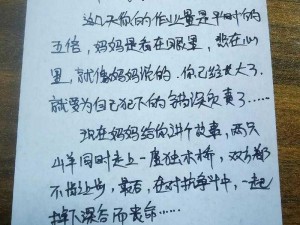 这几天你的作业量是平时的
五倍，妈妈是看在眼里，悲在心
里，就像妈妈说的，你已经长大了，
就要为自己犯下的错误负责了……
现在妈妈给你讲个故事，两只
山羊同时走上一座独木桥，双方都
不肯让步，最后，在对抗争斗中，一起
掉下深谷而丧命……